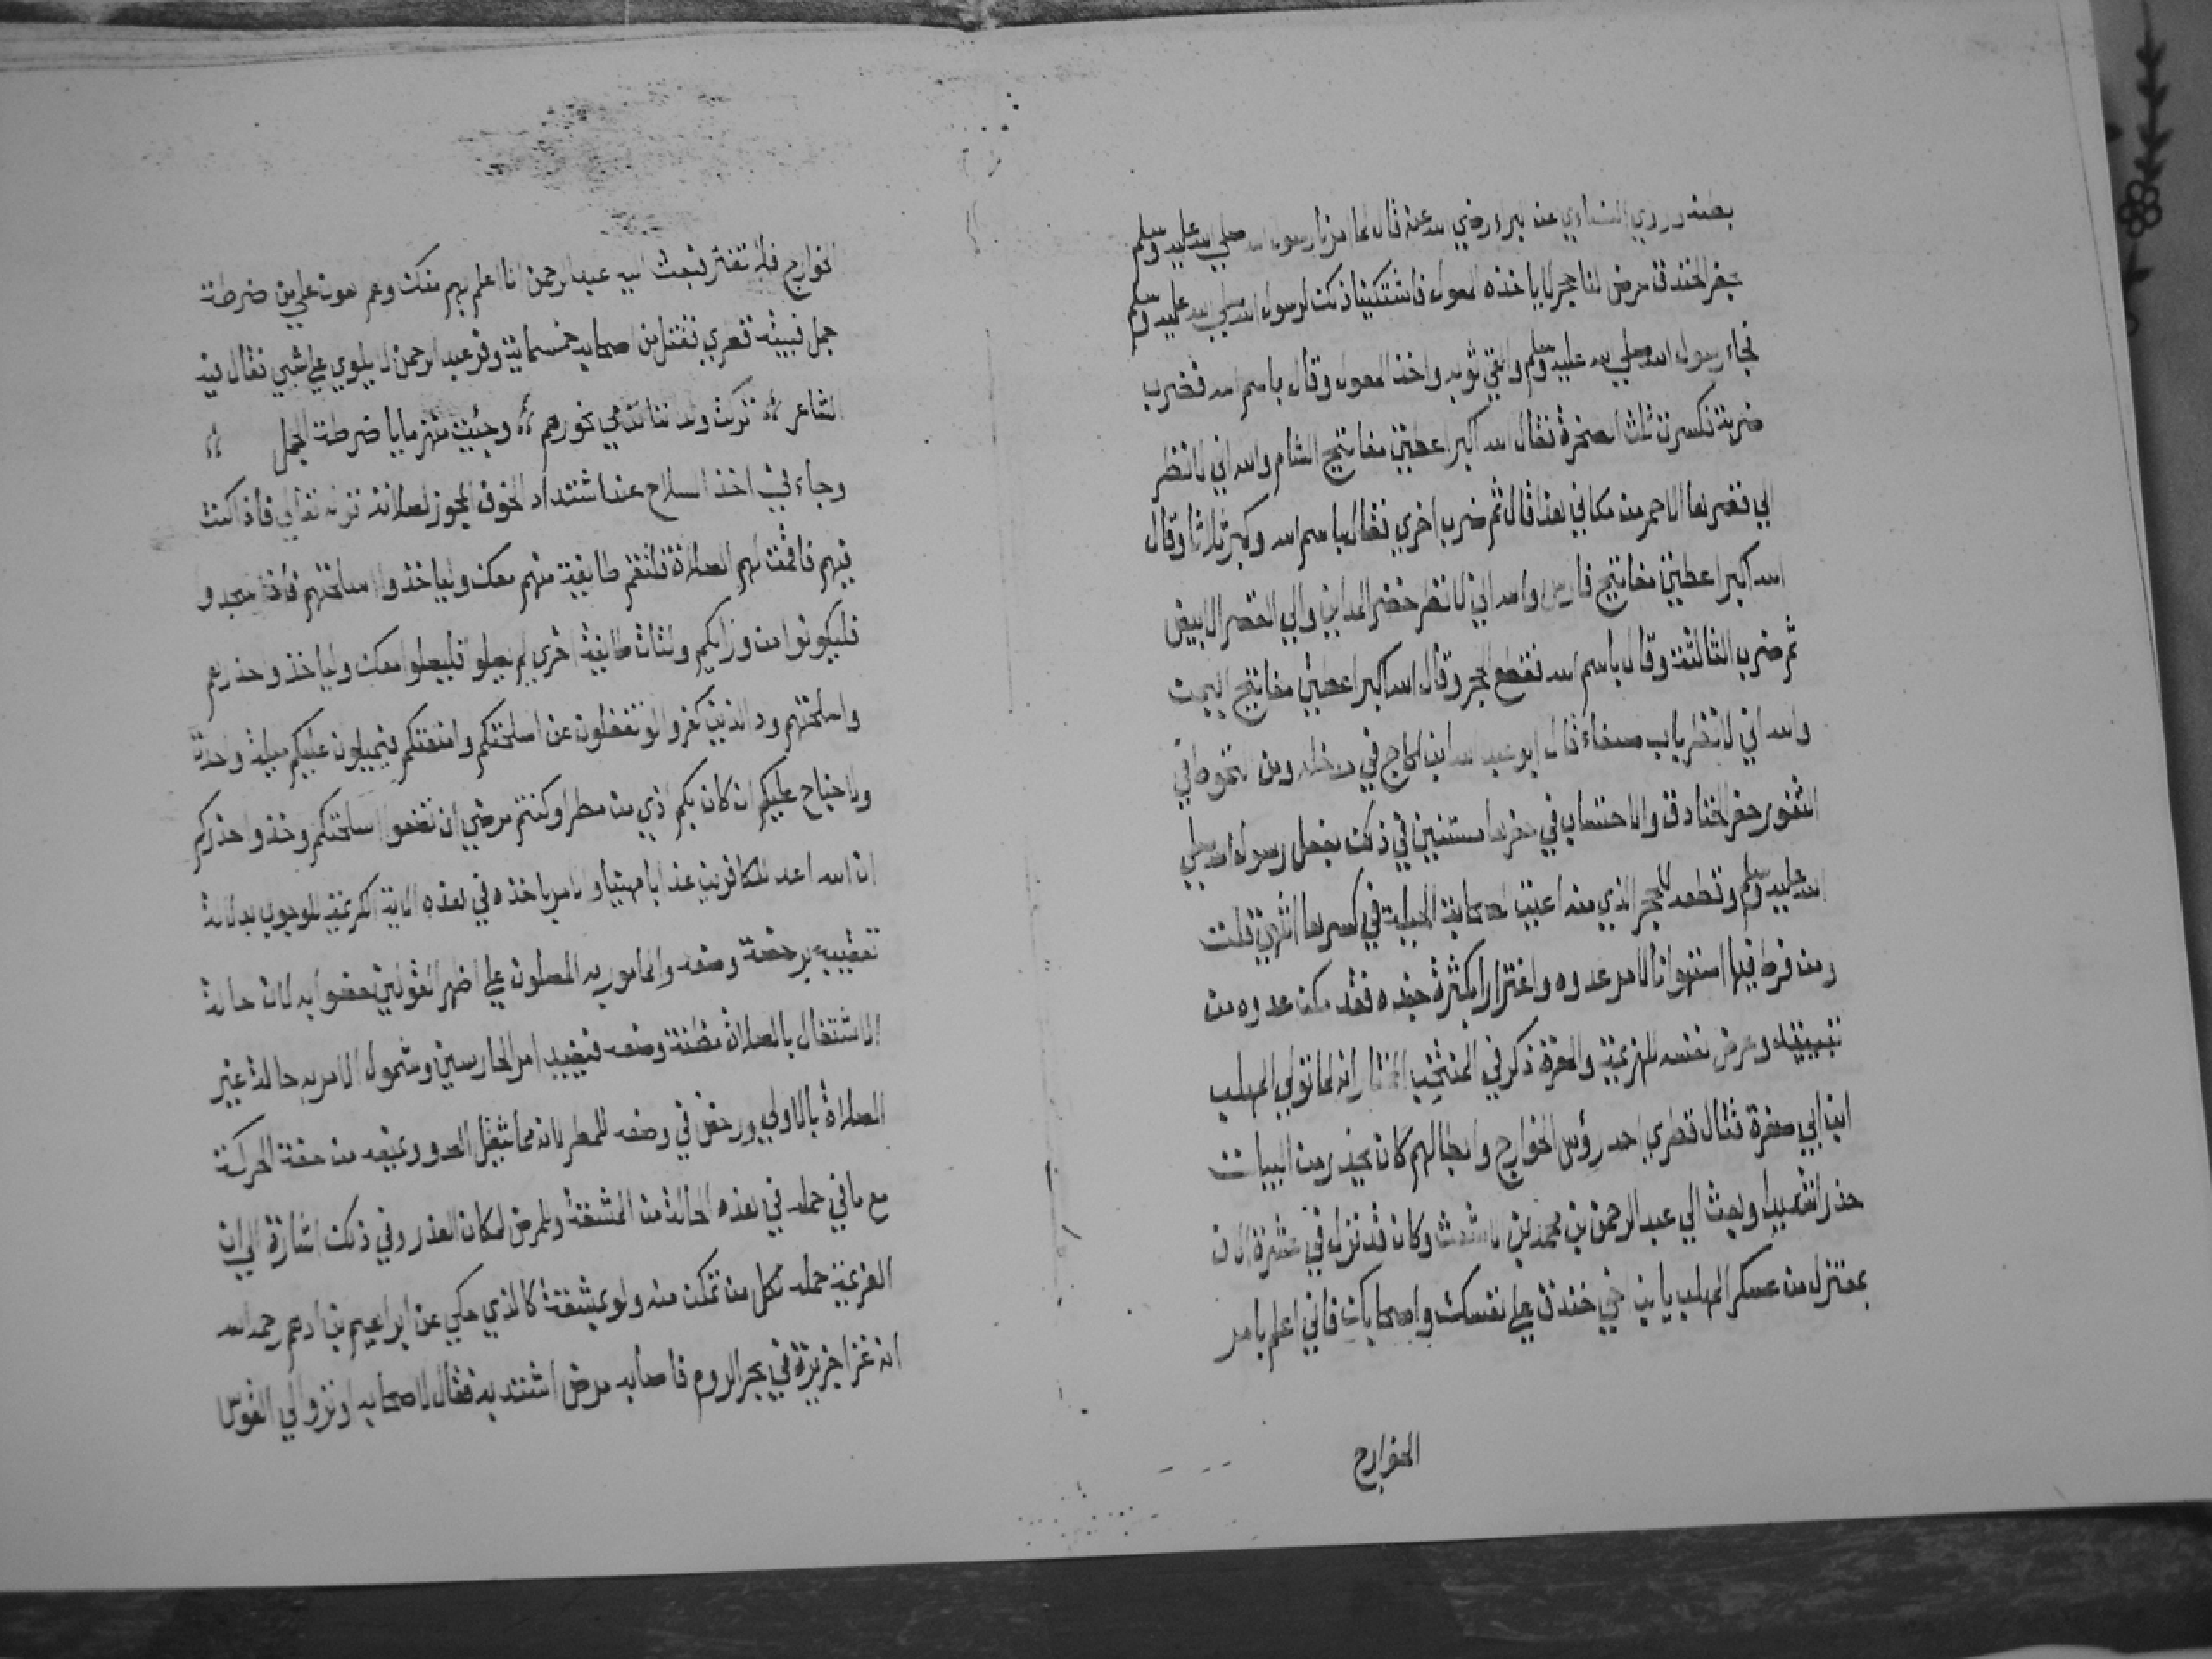 بطنه وروي النساي عن البراء رضي الله عنه قال لما امرنا رسول الله صلي الله عليه وسلم
بحفر الخندق عرض لنا حجر لا ياخذه المعول فاشتكينا ذلك لرسول الله صلي الله عليه وسلم
فجاء رسول الله صلي الله عليه وسلم والقي ثوبه واخذ المعول وقال باسم الله فضرب
ضربة فكسرت ثلث الصخرة فقال الله اكبر اعطيت مفاتيح الشام والله اني لانظر
الي قصرها الاحمر من مكاني هذا قال ثم ضرب اخري فقال باسم الله وكبر ثلاثا وقال
الله اكبر اعطيت مفاتيح فارس والله اني لانظر خضر المداين والي القصر الابيض
ثم ضرب الثالثة وقال باسم الله فقطع الحجر وقال الله اكبر اعطيت مفاتيح اليمن
والله اني لانظر باب صنعاء قال ابو عبد الله ابن الحاج في مدخله ومن التحوط في
الثغور حفر الخنادق والاحتساب في حفرها مستنين في ذلك بفعل رسول الله صلي
الله عليه وسلم وقطعه للحجر الذي منه اعيت اصحابه الحيلة في كسرها انتهي قلت
ومن فرط فيها استهوانا لامر عدوه واغترارا بكثرة جنده فقد مكن عدوه من
تبييته وعرض نفسه للهزيمة والمعرة ذكر في المنتخب انه لما تولي المهلب
ابن ابي صفرة قتال قطري احد رؤس الخوارج وابطالهم كان يحذر من البيات
حذرا شديدا وبعث الي عبد الرحمن بن محمد بن الاشعث وكان قد نزل في عشرة الاف
بمعتزل من عسكر المهلب يا بن اخي خندق علي نفسك واصحابك فاني اعلم بامر
الخوارج
الخوارج فلا تغتر فبعث اليه عبد الرحمن انا اعلم بهم منك وهم اهون علي من ضرطة
جمل فبيته قطري فقتل من اصحابه خمسماية وفر عبد الرحمن لا يلوي علي شي فقال فيه
الشاعر تركت ولداننا تدمي نحورهم وجيت منهزما يا ضرطة الجمل
وجاء في اخذ السلاح عند اشتداد الخوف المجوز لصلاته قوله تعالي فاذا كنت
فيهم فاقمت لهم الصلاة فلتقم طايفة منهم معك ولياخذوا اسلحتهم فاذا سجدوا
فليكونوا من ورايكم ولتات طايفة اخري لم يصلوا فليصلوا معك ولياخذوا حذرهم
واسلحتهم ود الذين كفروا لو تغفلون عن اسلحتكم وامتعتكم فيميلون عليكم ميلة واحدة
ولا جناح عليكم ان كان بكم اذي من مطر او كنتم مرضي ان تضعوا اسلحتكم وخذوا حذركم
ان الله اعد للكافرين عذابا مهينا والامر باخذه في هذه الاية الكريمة للوجوب بدلالة
تعقيبه برخصة وضعه والمامور به المصلون علي اظهر القولين خصوا به لان حالة
الاشتغال بالصلاة مظنة وضعه فيفيد امر الحارسين وشمول الامر به حالة غير
الصلاة بالاولي ورخص في وضعه للمطر لانه مما يثقل العدو ويمنعه من خفة الحركة
مع ما في حمله في هذه الحالة من المشقة وللمرض لمكان العذر وفي ذلك اشارة الي ان
العزيمة حمله لكل من تمكن منه ولو بمشقة كالذي حكي عن ابراهيم بن ادهم رحمه الله
انه غزا جزيرة في بحر الروم فاصابه مرض اشتد به فقال لاصحابه اوتروا لي القوس